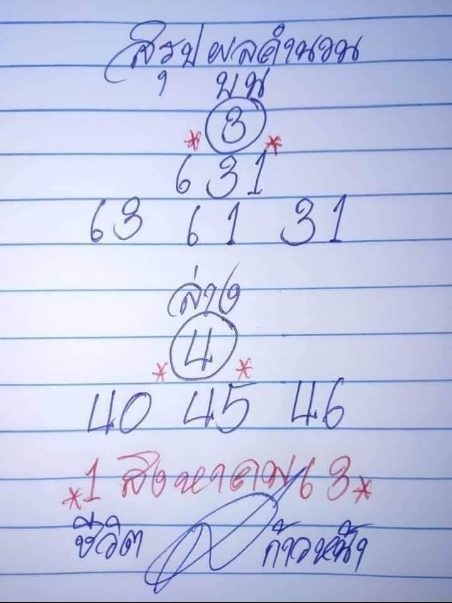 สรุปผลคำนวน
บน
* 3 *
631
63 61 31
ล่าง
* 4 *
40 45 46
* 1 สิงหาคม 63 *
ชีวิต ก้าวหน้า